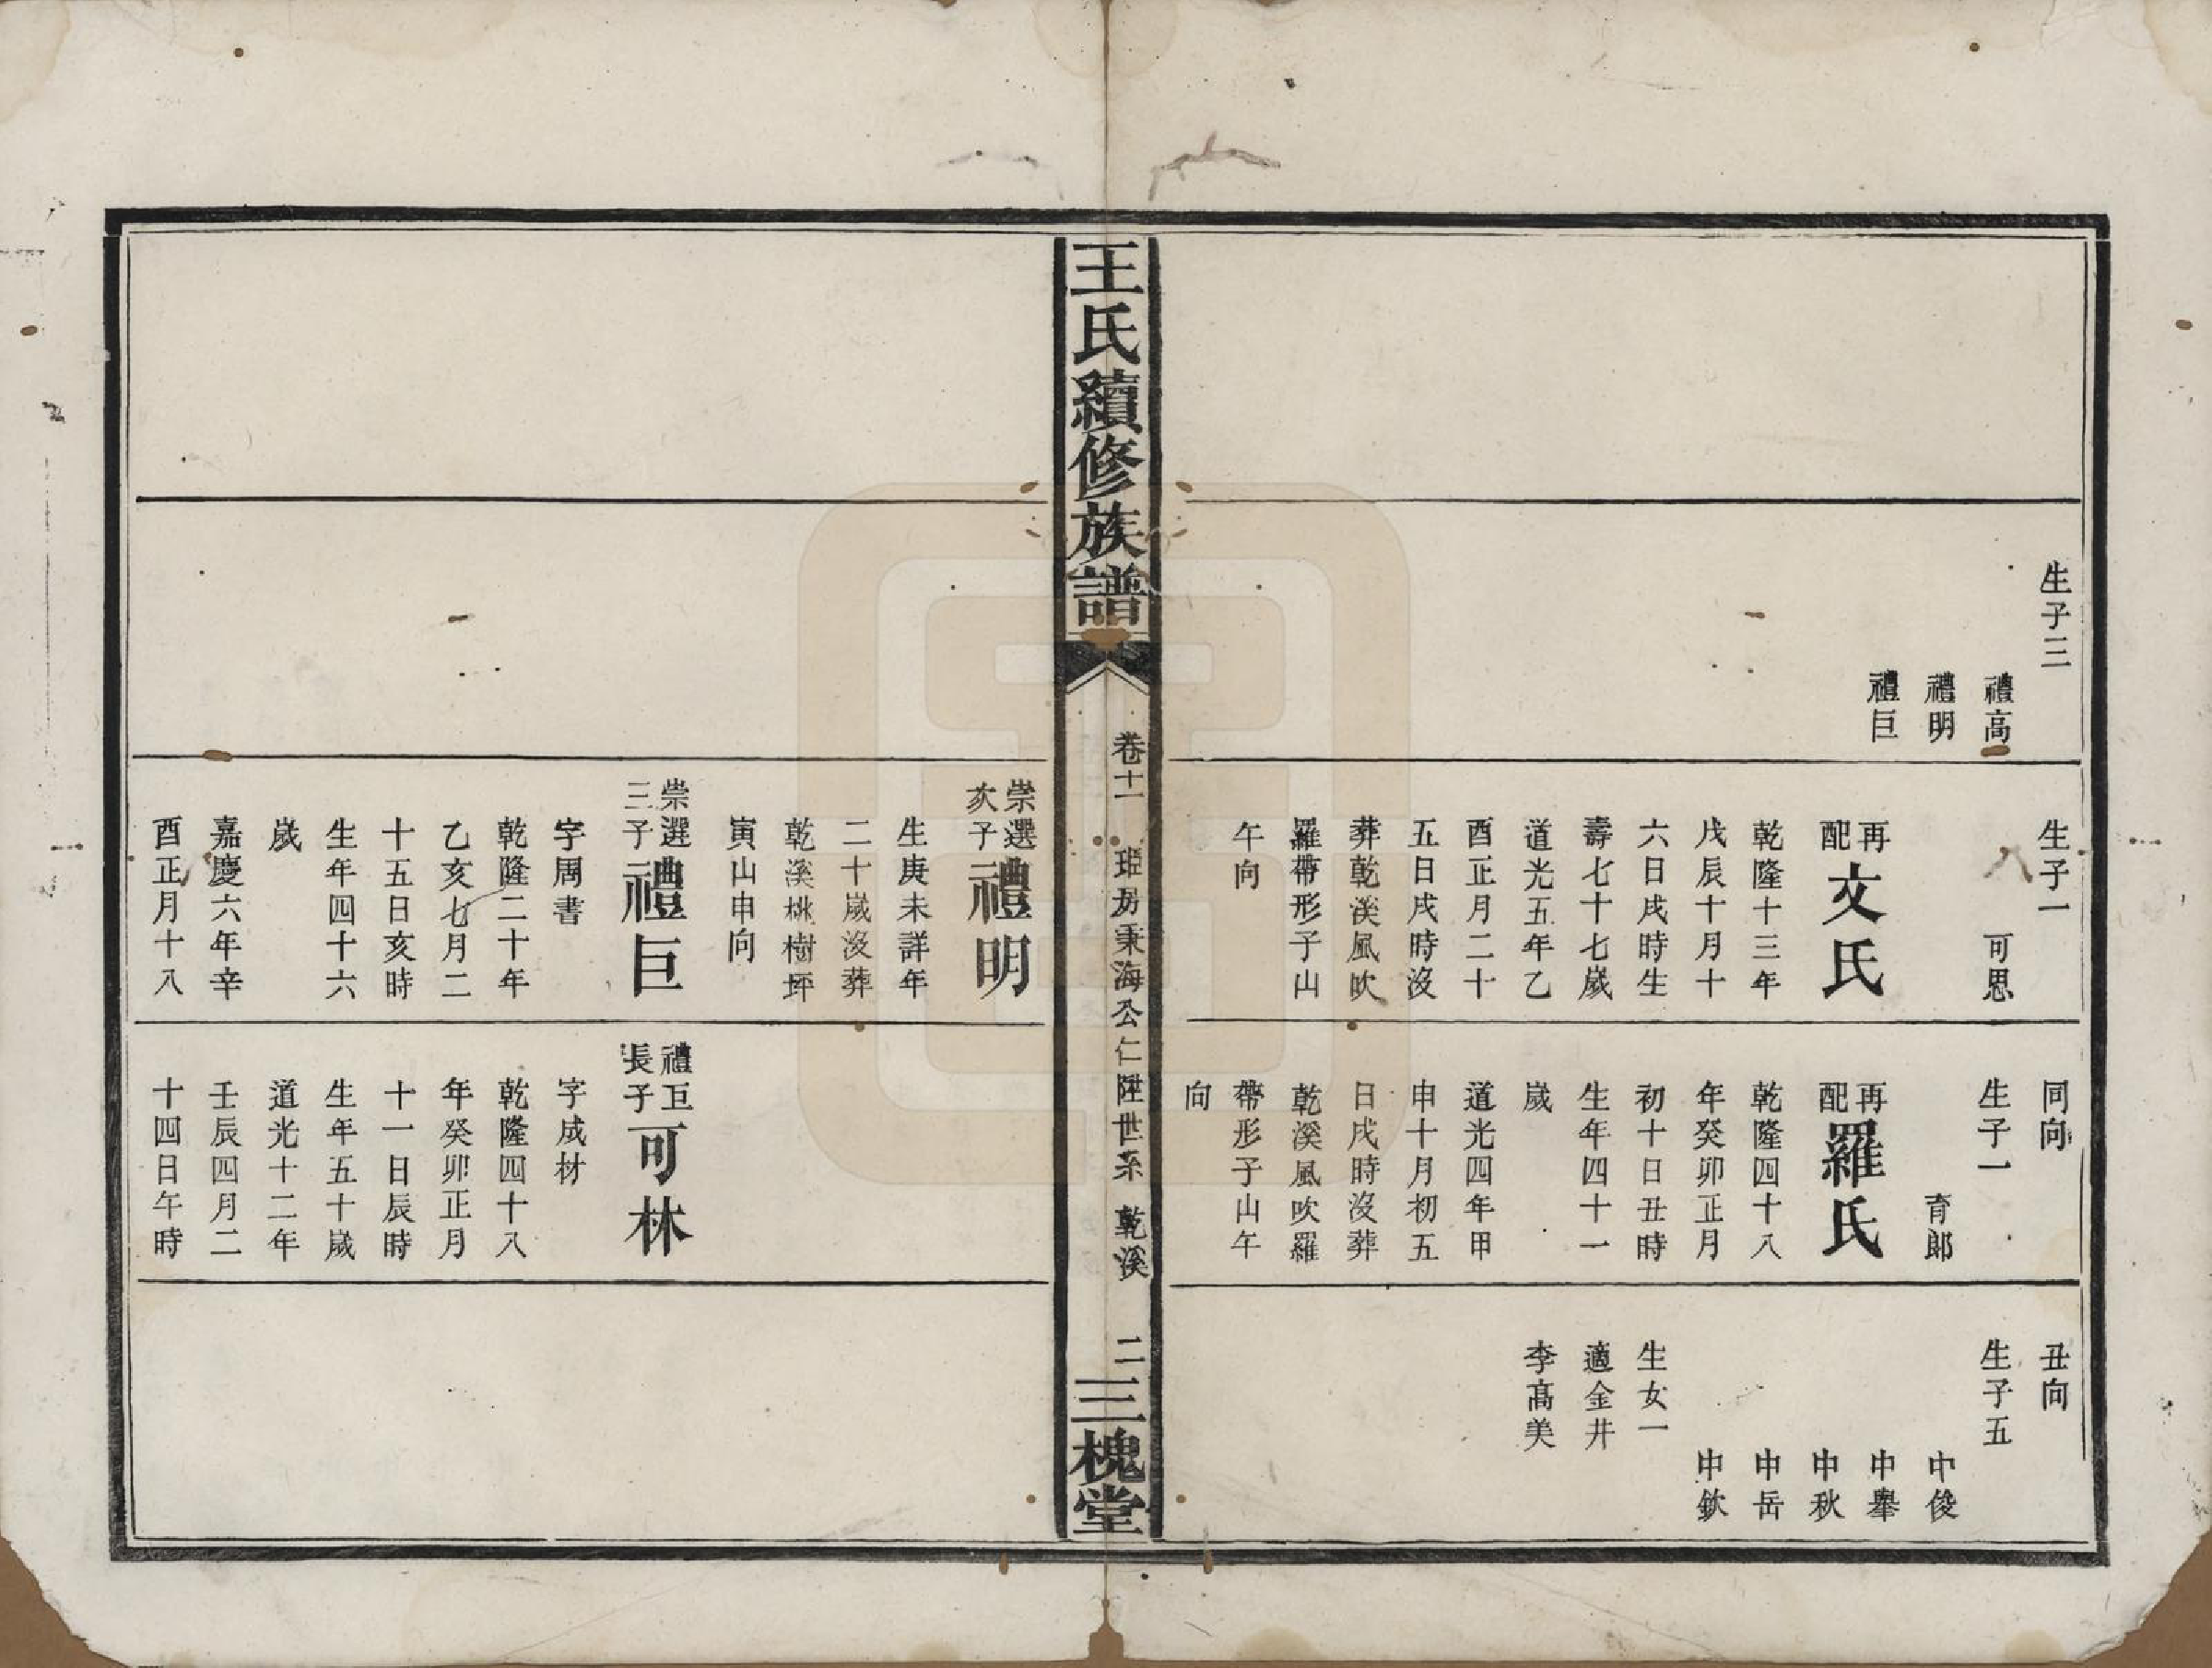 生子三
禮高
禮明
禮巨
生子一
可思
再配文氏
乾隆十三年
戊辰十月十
六日戌時生
壽七十七歲
道光五年乙
酉正月二十
五日戌時沒
葬乾溪風吹
羅帶形子山
午向
同向
生子一
育郞
再配羅氏
乾隆四十八
年癸卯正月
初十日丑時
生年四十一
歲
道光四年甲
申十月初五
日戌時沒葬
乾溪風吹羅
帶形子山午
向
丑向
生子五
中俊
中舉
中秋
中岳
中欽
生女一
適金井
李高美
王氏續修族譜
卷十一
房秉海公仁陞世系
乾溪
二
三槐堂
崇選次子禮明
生庚未詳年
二十歲沒葬
乾溪桃樹坪
寅山申向
崇選三子禮巨
字周書
乾隆二十年
乙亥七月二
十五日亥時
生年四十六
歲
嘉慶六年辛
酉正月十八
禮巨長子可林
字成材
乾隆四十八
年癸卯正月
十一日辰時
生年五十歲
道光十二年
壬辰四月二
十四日午時